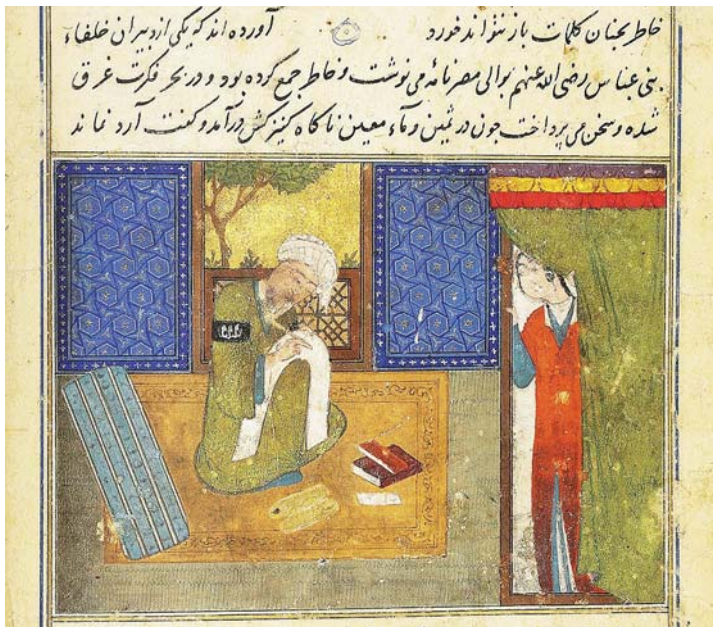 خاطر بجنان کلمات باز نتواند خورد آورده اند که یکی از دبیران خلفاء
بنی عباس رضی الله عنهم بوالی مصر نامه می نوشت و خاطر جمع کرده بود و در بحر فکرت غرق
شده و سخن می پرداخت چون در ثمین و ماء معین ناکاه کنیزکش درآمد و کفت آرد نماند